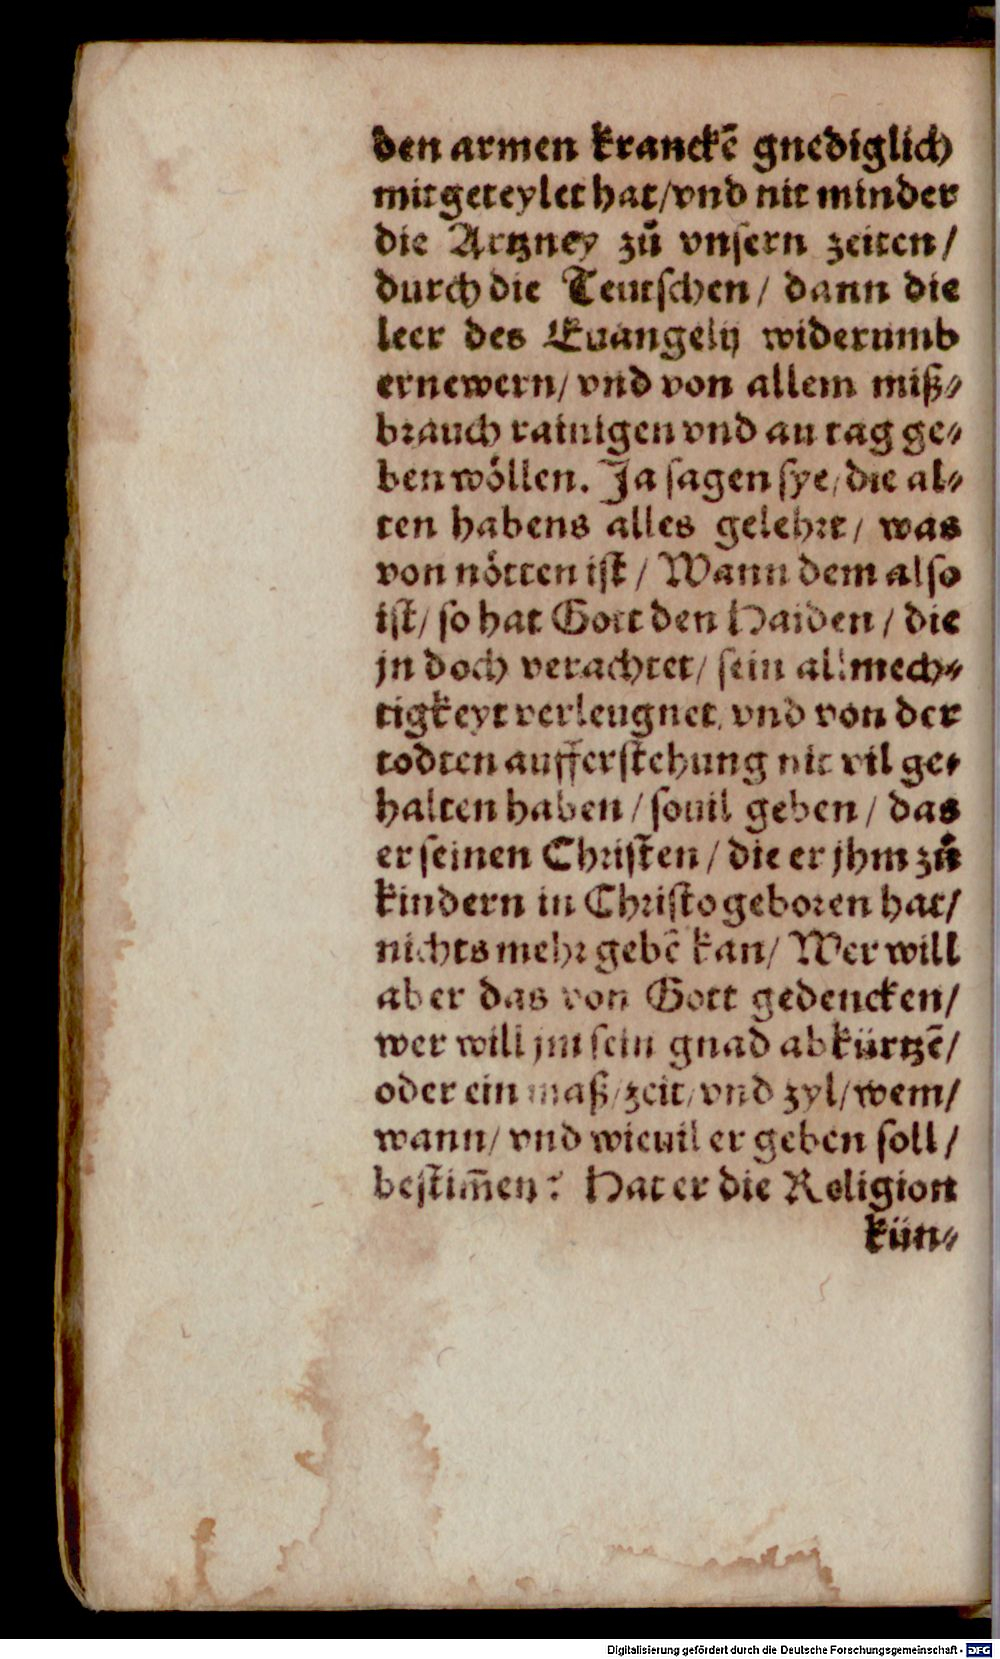 den armen kranckē gnediglich
mitgeteylet hat/vnd nit minder
die Artzney zů vnsern zeiten/
durch die Teutschen/ dann die
leer des Euangelij widerumb
ernewern/ vnd von allem miß⸗
brauch rainigen vnd an tag ge⸗
ben wöllen. Ja sagen sye/die al⸗
ten habens alles gelehrt/ was
von nötten ist/ Wann dem also
ist/ so hat Gott den Haiden/ die
jn doch verachtet/ sein allmech⸗
tigkeyt verleugnet, vnd von der
todten aufferstehung nit vil ge⸗
halten haben/ souil geben/ das
er seinen Christen/ die er jhm zů
kindern in Christo geboren hat/
nichts mehr gebē kan/ Wer will
aber das von Gott gedencken/
wer will jm sein gnad abkürtzē/
oder ein maß/zeit/vnd zyl/wem/
wann/ vnd wieuil er geben soll/
bestim̄en? Hat er die Religion
kün⸗
Digitalisierung gefördert durch die Deutsche Forschungsgemeinschaft - DFG